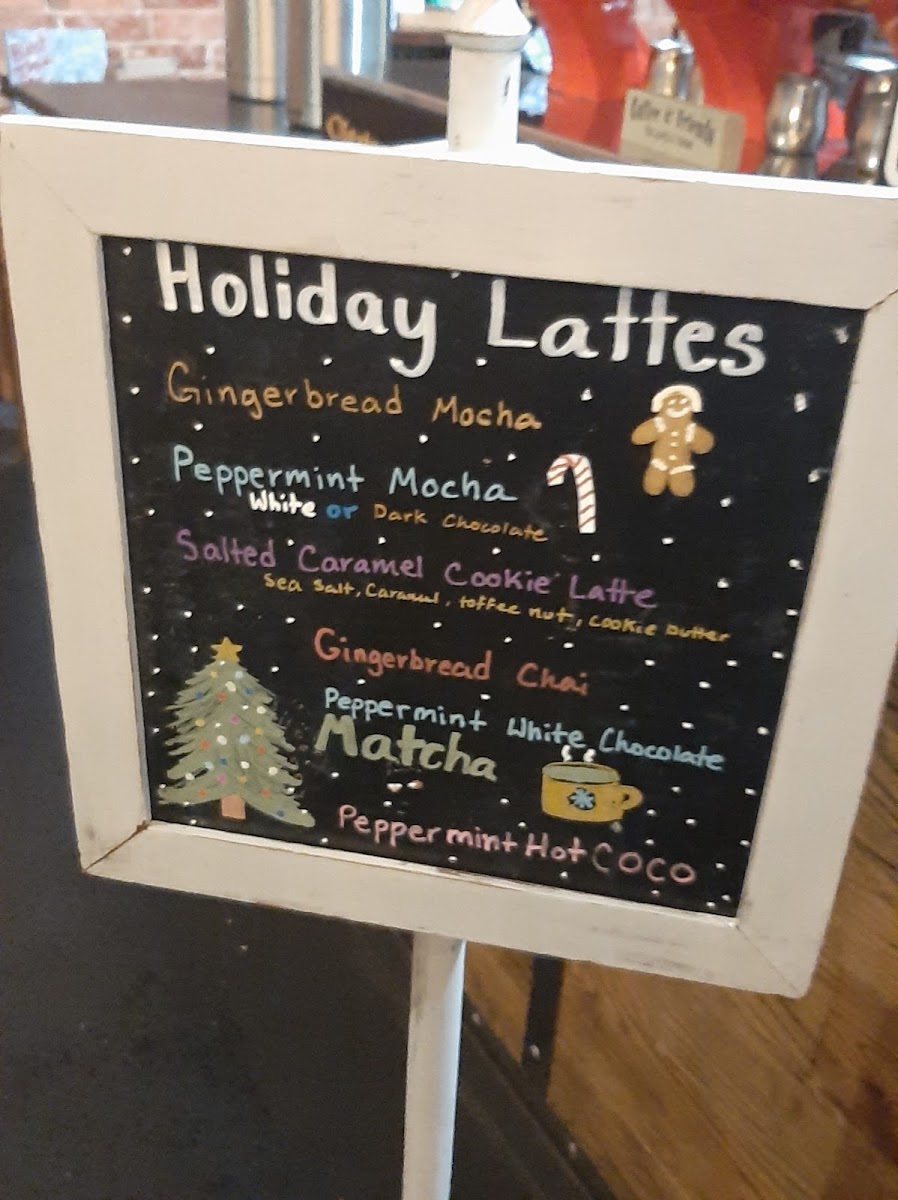 Coffee & Friends
Holiday Lattes
Gingerbread Mocha
Peppermint Mocha
White or Dark Chocolate
Salted Caramel Cookie Latte
Sea Salt, Caramel, toffee nut, cookie butter
Gingerbread Chai
Peppermint White Chocolate
Matcha
Peppermint Hot COCO